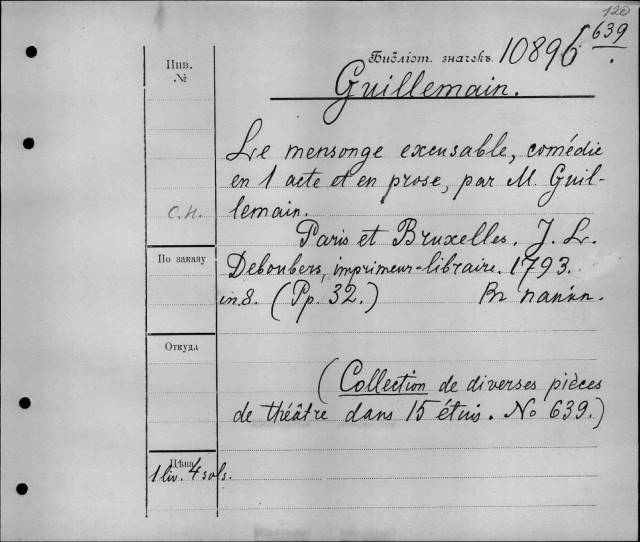 120
639
Инв.
№
Библіот. значекъ 10896
Guillemain.
Le mensonge excusable, comédie
en 1 acte et en prose, par M. Guil-
lemain.
С.н.
Paris et Bruxelles. J. L.
По заказу
Deboubers, imprimeur-libraire. 1793.
in 8. (Pp. 32.) Въ папкѣ.
Откуда
(Collection de diverses pièces
de théâtre dans 15 étuis. No 639.)
Цѣна
1 liv. 4 sols.